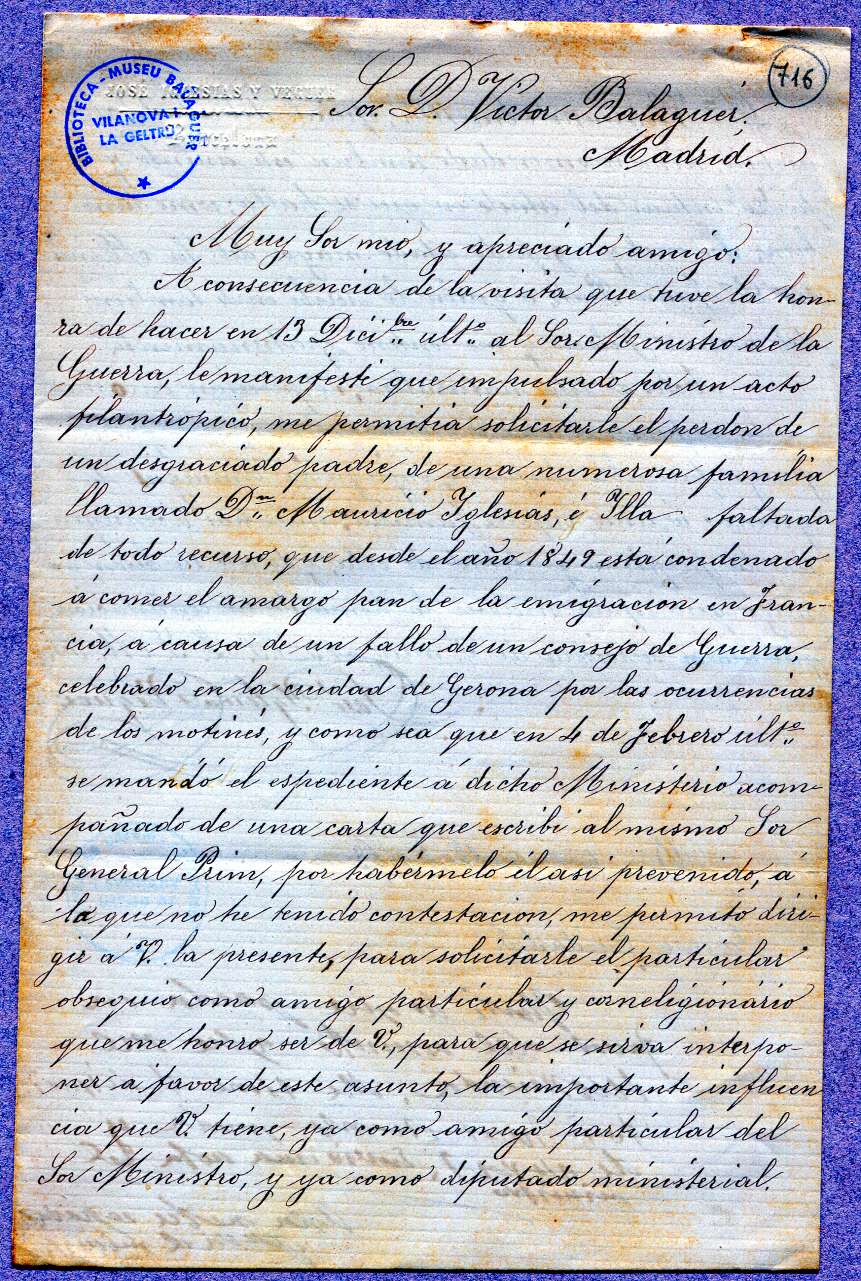 716
BIBLIOTECA - MUSEU BALAGUER
VILANOVA I
LA GELTRÚ
JOSÉ IGLESIAS Y VEGUER
Barcelona
Sor. D. Victor Balaguer.
Madrid.
Muy Sor mio, y apreciado amigo:
A consecuencia de la visita que tuve la hon-
ra de hacer en 13 Dicibre últo al Sor. Ministro de la
Guerra, le manifesti que impulsado por un acto
filantrópico, me permitia solicitarle el perdon de
un desgraciado padre, de una numerosa familia
llamado Dn Mauricio Iglesias, é Illa faltada
de todo recurso, que desde el año 1849 está condenado
á comer el amargo pan de la emigración en Fran-
cia, á causa de un fallo de un consejo de Guerra,
celebrado en la ciudad de Gerona por las ocurrencias
de los motines, y como sea que en 4 de Febrero últo
se mandó el espediente á dicho Ministerio acom-
pañado de una carta que escribi al mismo Sor
General Prim, por habérmelo él asi prevenido, á
la que no he tenido contestacion, me permito diri-
gir á V. la presente, para solicitarle el particular
obsequio como amigo particular y correligionário
que me honro ser de V., para que se sirva interpo-
ner a favor de este asunto, la importante influen
cia que V. tiene, ya como amigo particular del
Sor Ministro, y ya como diputado ministerial.